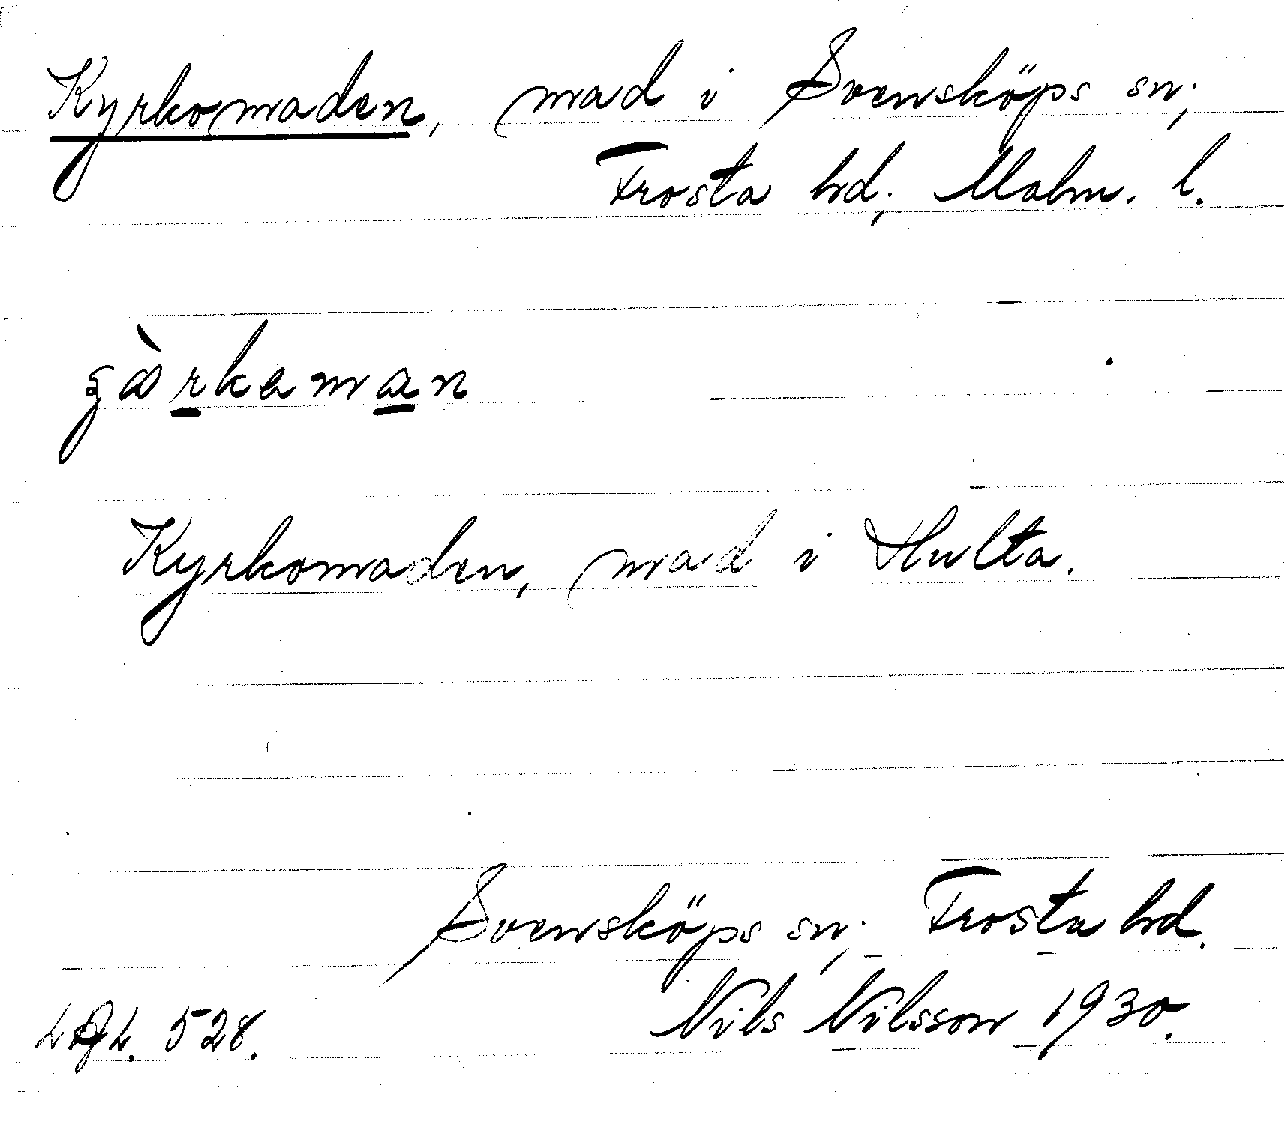 Kyrkomaden, mad i Svensköps sn;
Frosta hd; Malm. l.
Kyrkomaden, mad i Hulta.
Svensköps sn; Frosta hd.
Nils Nilsson 1930.
528.